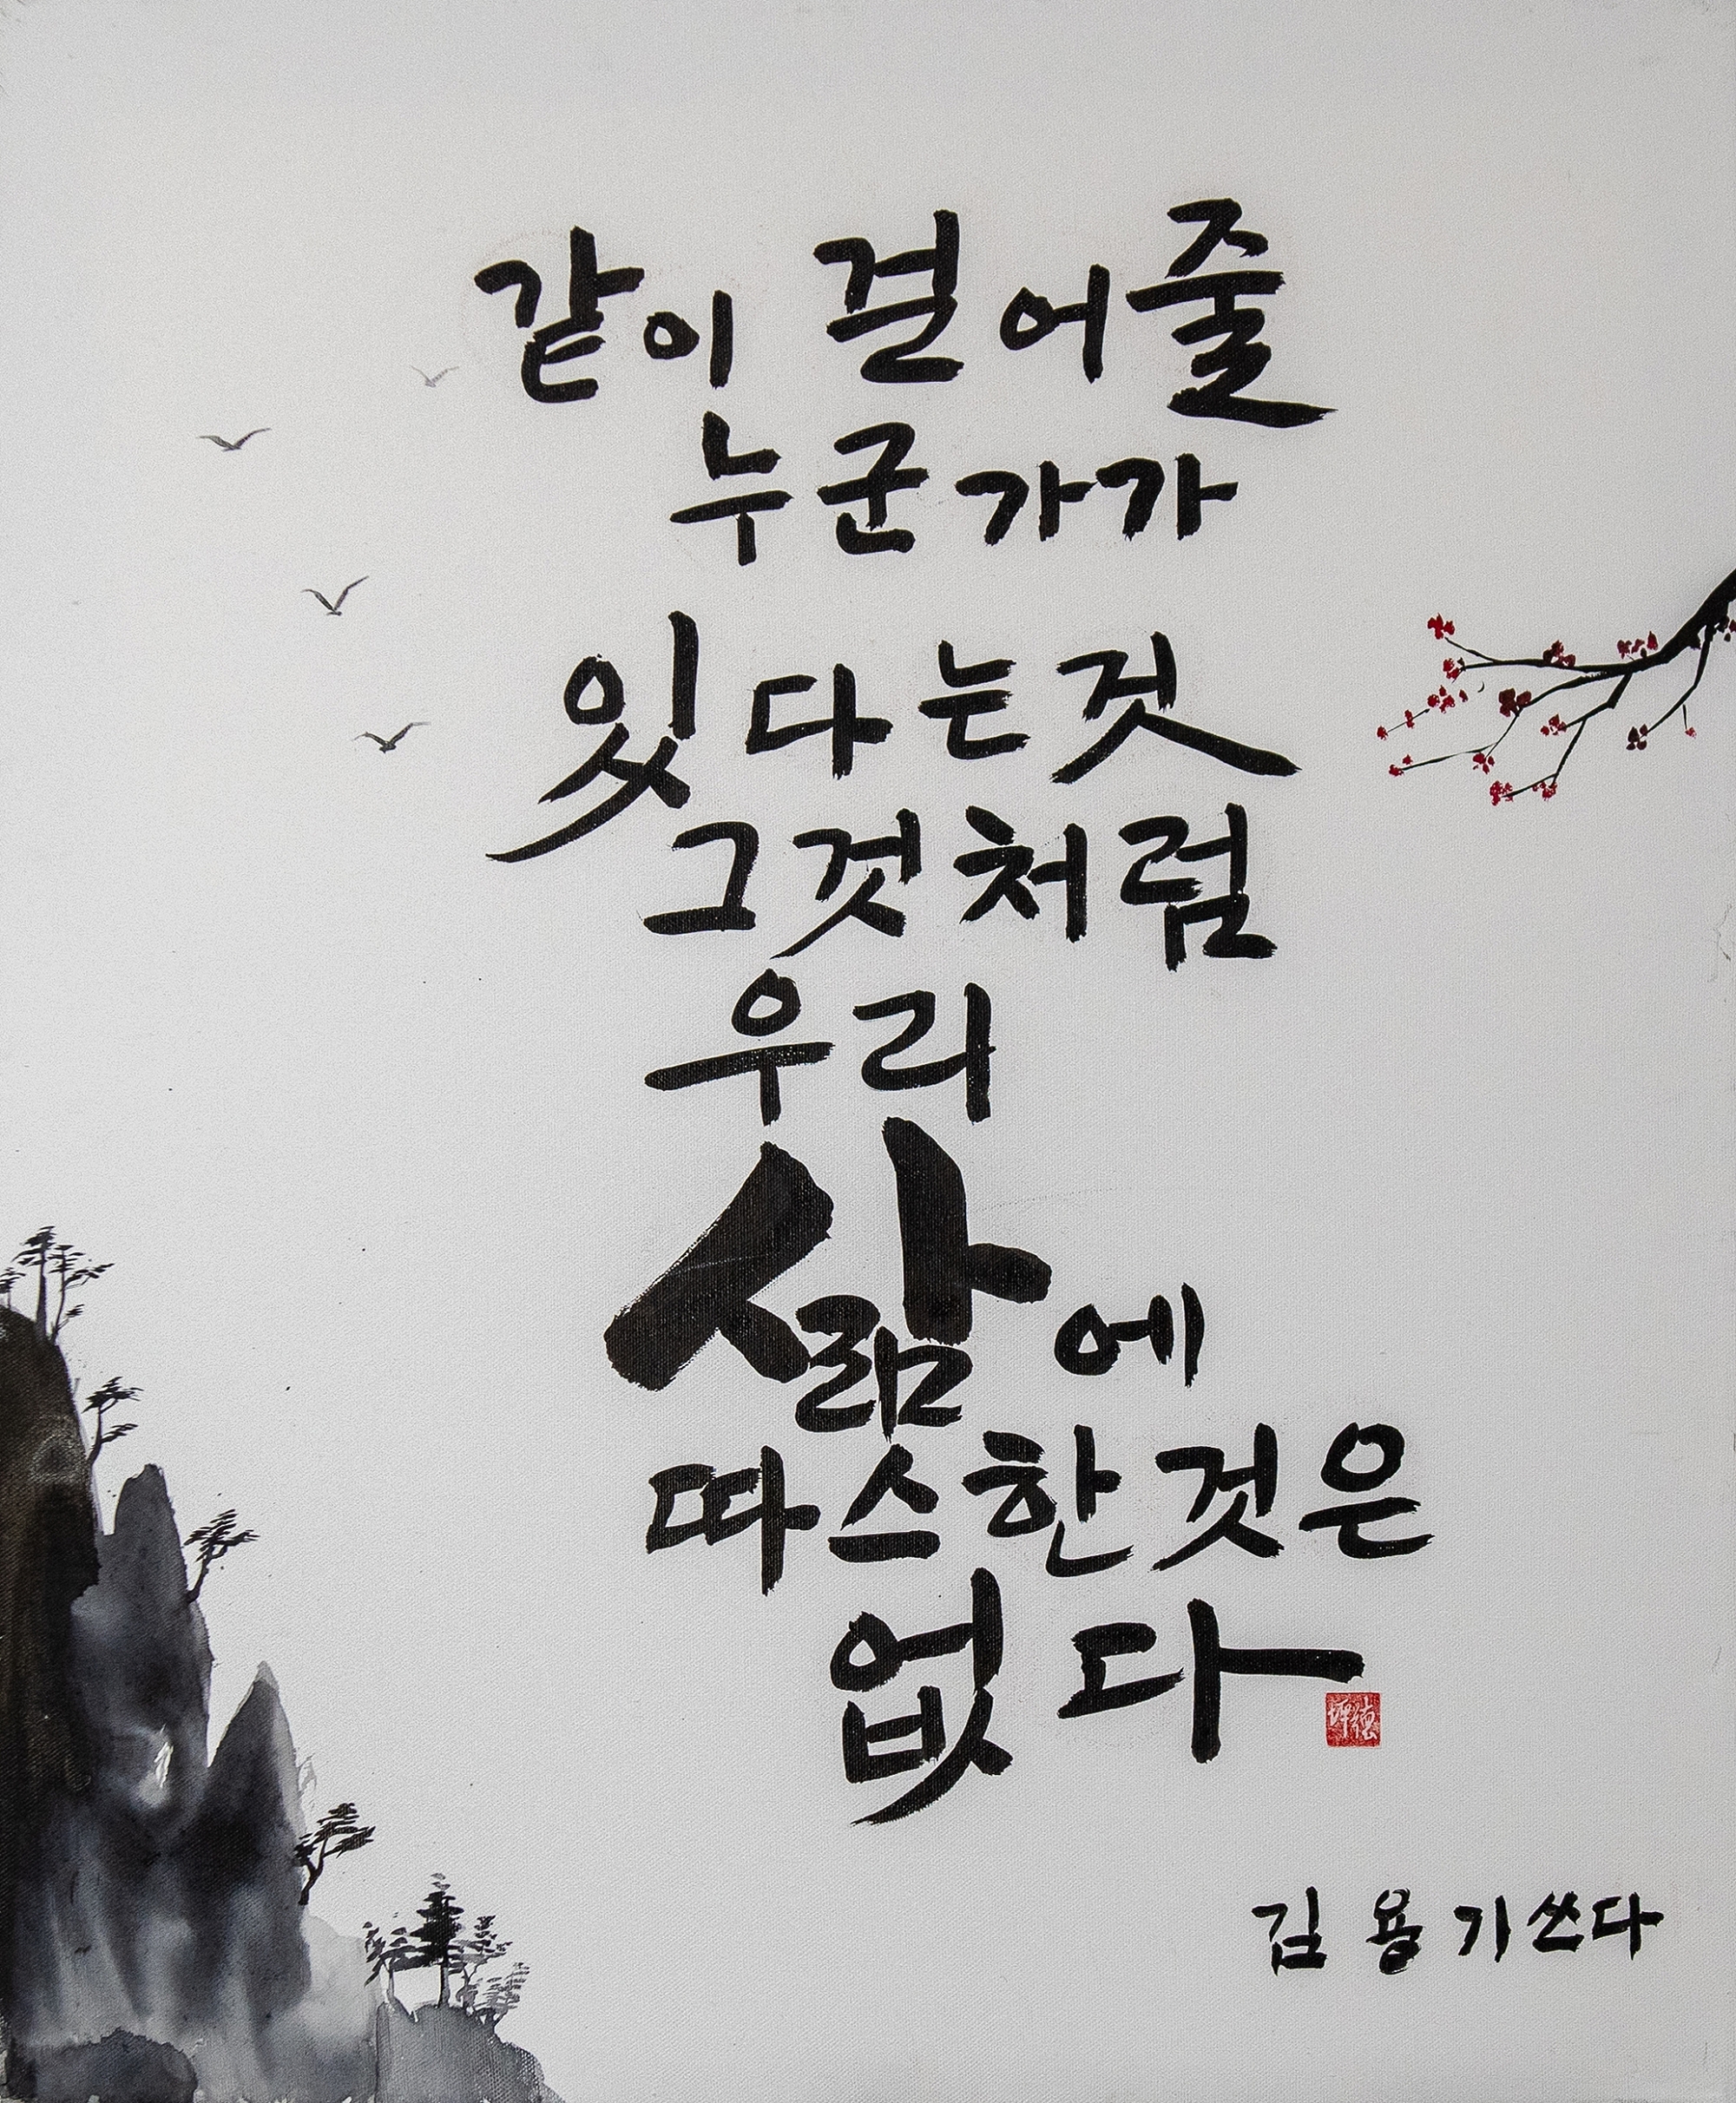 같이 걷어줄
누군가가
있다는것
그것처럼
우리
삶에
따스한것은
없다
김용기쓰다